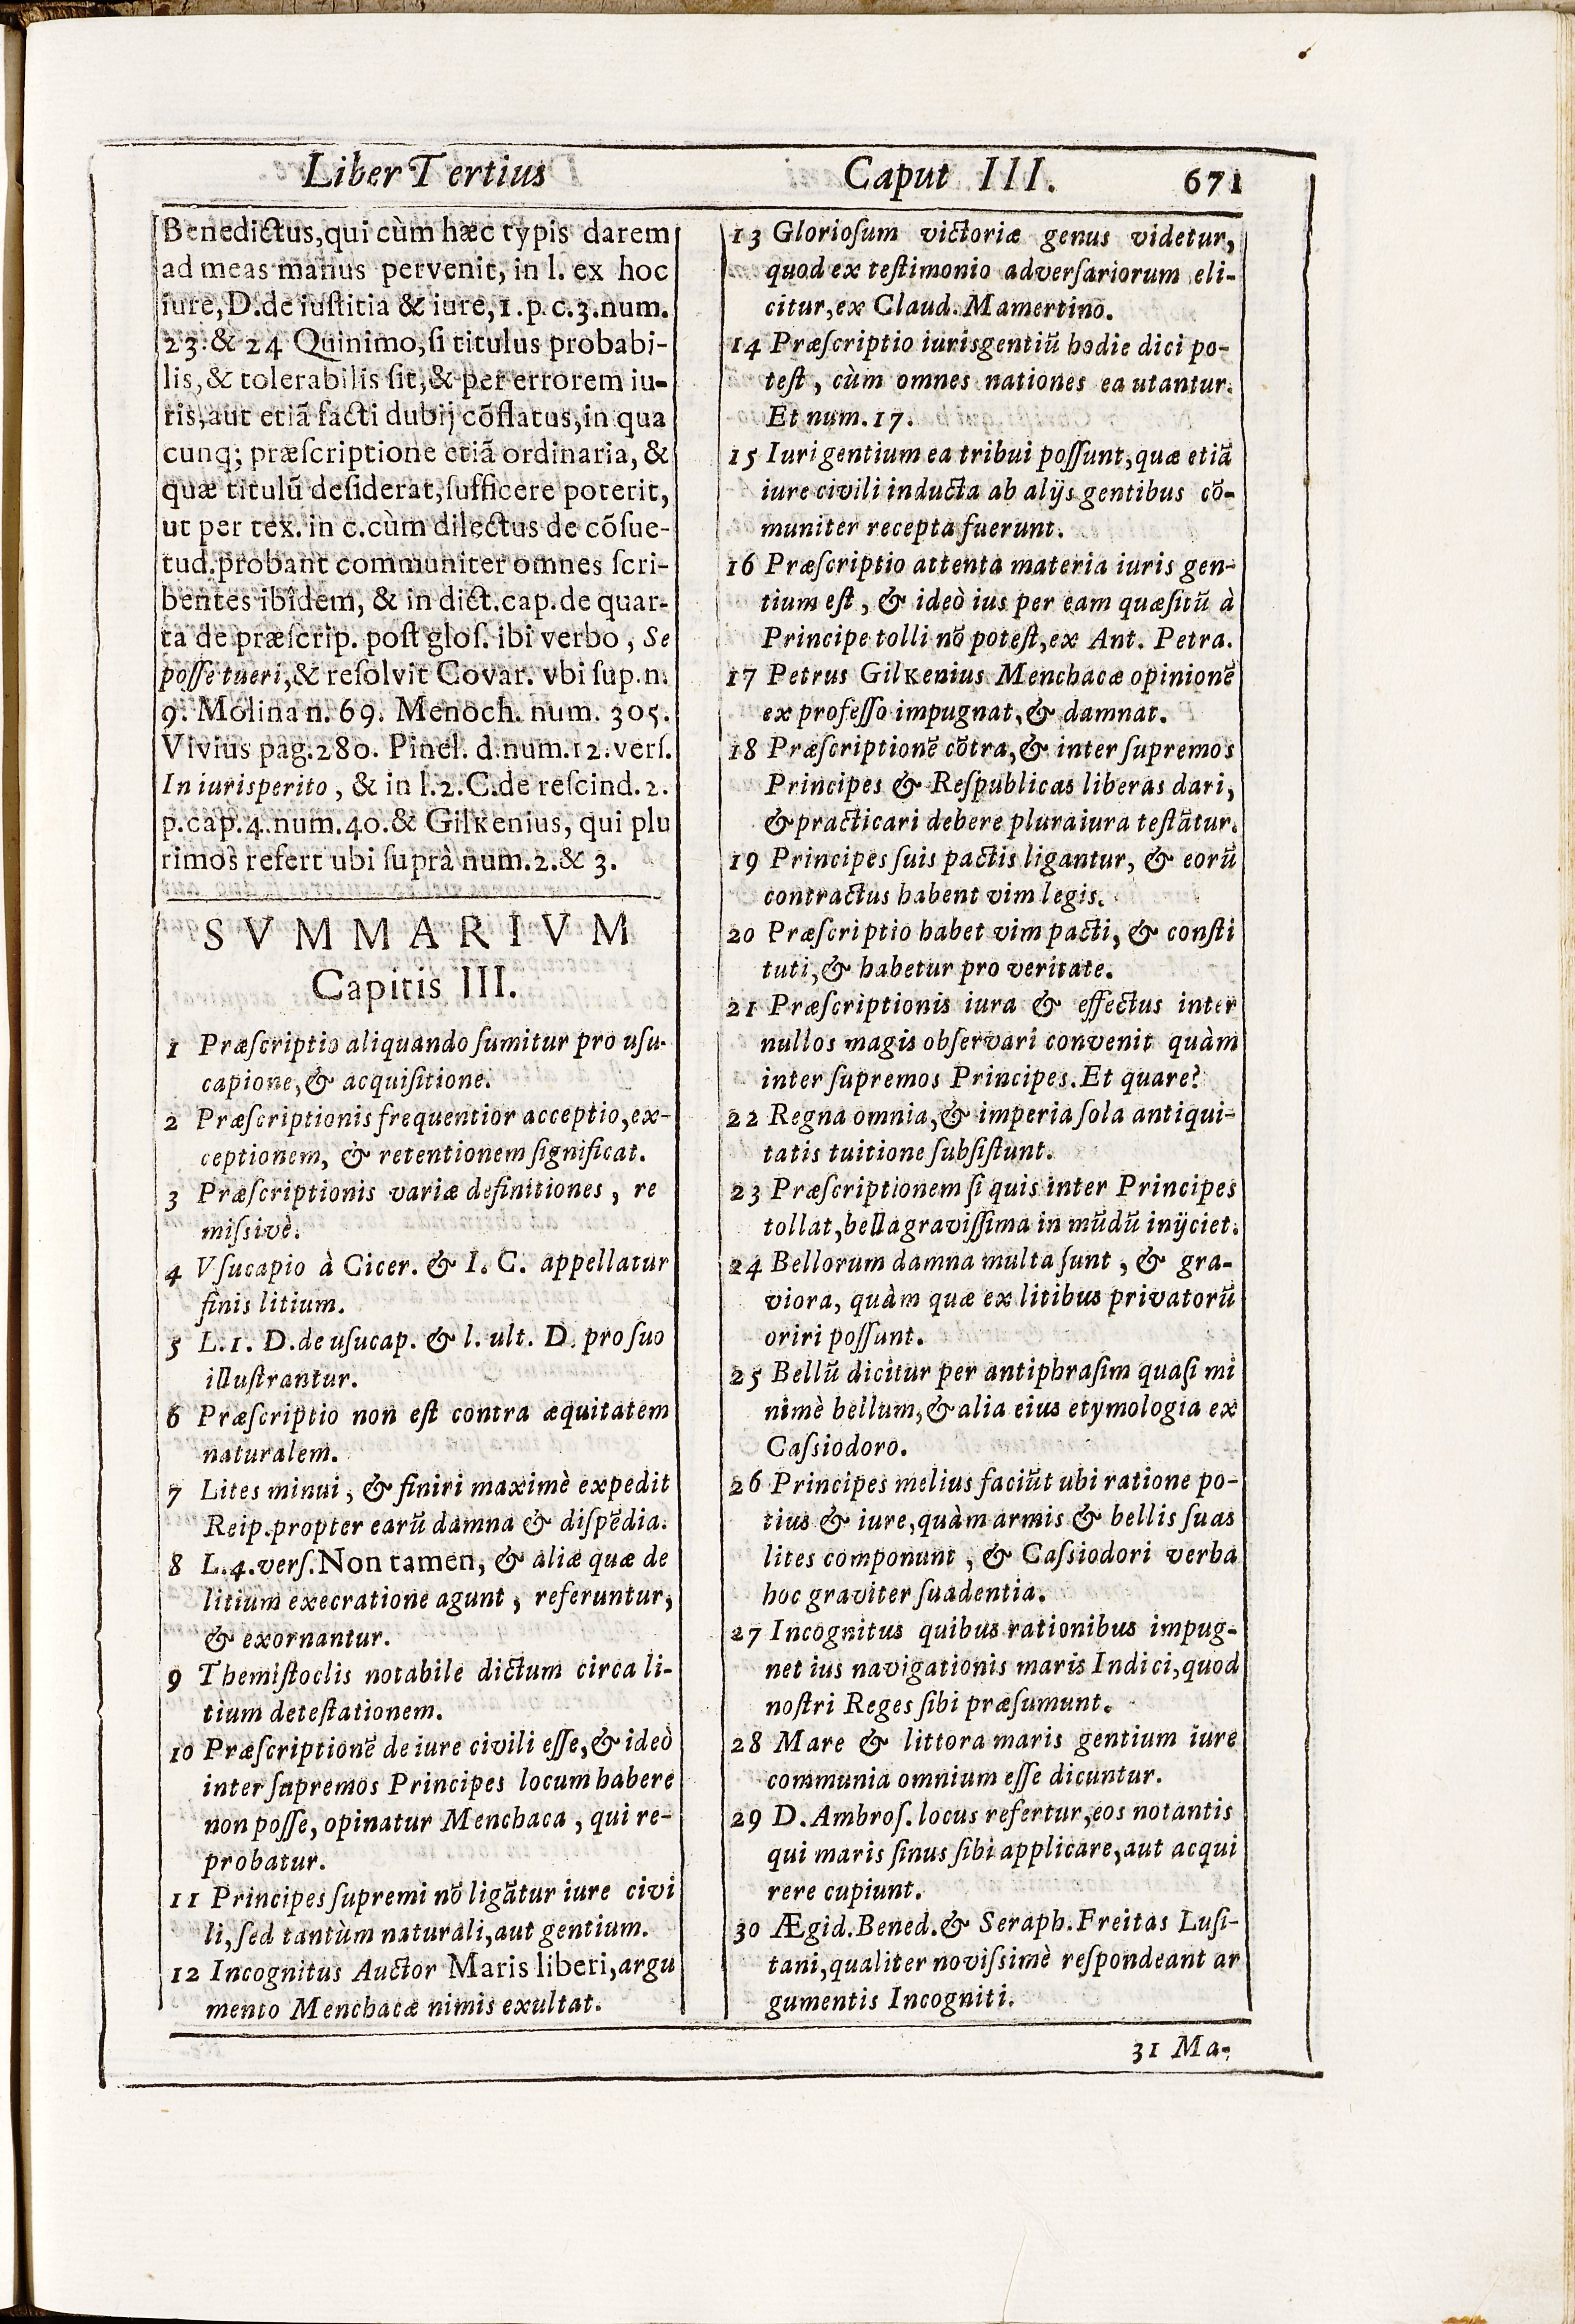 Liber Tertius Caput III. 671
Benedictus,qui cùm hæc typis darem
ad meas manus pervenit, in l. ex hoc
iure, D.de iuſtitia & iure, 1. p. c. 3. num.
23. & 24 Quinimo, ſi titulus probabi-
lis, & tolerabilis ſit, & per errorem iu-
ris, aut etiã facti dubij cõflatus, in qua
cunq; præſcriptione etiã ordinaria, &
quæ titulũ deſiderat, ſufficere poterit,
ut per tex. in c. cùm dilectus de cõſue-
tud. probant communiter omnes ſcri-
bentes ibîdem, & in dict. cap. de quar-
ta de præſcrip. poſt gloſ. ibi verbo, Se
poſſe tueri, & reſolvit Covar. vbi ſup. n.
9. Molina n. 69. Menoch. num. 305.
Vivius pag. 280. Pinel. d. num. 12. verſ.
In iurisperito, & in l. 2. C. de reſcind. 2.
p. cap. 4. num. 40. & Gilkenius, qui plu
rimos refert ubi ſuprà num. 2. & 3.
SVMMARIVM
Capitis III.
1 Præſcriptio aliquando ſumitur pro uſu-
capione, & acquiſitione.
2 Præſcriptionis frequentior acceptio, ex-
ceptionem, & retentionem ſignificat.
3 Præſcriptionis variæ definitiones, re
miſsivè.
4 Vſucapio à Cicer. & I. C. appellatur
finis litium.
5 L. 1. D. de uſucap. & l. ult. D. pro ſuo
illuſtrantur.
6 Præſcriptio non eſt contra æquitatem
naturalem.
7 Lites minui, & finiri maximè expedit
Reip. propter earũ damna & diſpẽdia.
8 L. 4. verſ. Non tamen, & aliæ quæ de
litium execratione agunt, referuntur,
& exornantur.
9 Themiſtoclis notabile dictum circa li-
tium deteſtationem.
10 Præſcriptionẽ de iure civili eſſe, & ideò
inter ſupremos Principes locum habere
non poſſe, opinatur Menchaca, qui re-
probatur.
11 Principes ſupremi nõ ligãtur iure civi
li, ſed tantùm naturali, aut gentium.
12 Incognitus Auctor Maris liberi, argu
mento Menchacæ nimis exultat.
13 Glorioſum victoriæ genus videtur,
quod ex teſtimonio adverſariorum eli-
citur, ex Claud. Mamertino.
14 Præſcriptio iurisgentiũ hodie dici po-
teſt, cùm omnes nationes ea utantur.
Et num. 17.
15 Iuri gentium ea tribui poſſunt, quæ etiã
iure civili inducta ab alijs gentibus cõ-
muniter recepta fuerunt.
16 Præſcriptio attenta materia iuris gen-
tium eſt, & ideò ius per eam quæſitũ à
Principe tolli nõ poteſt, ex Ant. Petra.
17 Petrus Gilkenius Menchacæ opinionẽ
ex profeſſo impugnat, & damnat.
18 Præſcriptionẽ cõtra, & inter ſupremos
Principes & Reſpublicas liberas dari,
& practicari debere plura iura teſtãtur.
19 Principes ſuis pactis ligantur, & eorũ
contractus habent vim legis.
20 Præſcriptio habet vim pacti, & conſti
tuti, & habetur pro veritate.
21 Præſcriptionis iura & effectus inter
nullos magis obſervari convenit quàm
inter ſupremos Principes. Et quare?
22 Regna omnia, & imperia ſola antiqui-
tatis tuitione ſubſiſtunt.
23 Præſcriptionem ſi quis inter Principes
tollat, bella graviſſima in mũdũ inijciet.
24 Bellorum damna multa ſunt, & gra-
viora, quàm quæ ex litibus privatorũ
oriri poſſunt.
25 Bellũ dicitur per antiphraſim quaſi mi
nimè bellum, & alia eius etymologia ex
Caſsiodoro.
26 Principes melius faciũt ubi ratione po-
tius & iure, quàm armis & bellis ſuas
lites componunt, & Caſsiodori verba
hoc graviter ſuadentia.
27 Incognitus quibus rationibus impug-
net ius navigationis maris Indici, quod
noſtri Reges ſibi præſumunt.
28 Mare & littora maris gentium iure
communia omnium eſſe dicuntur.
29 D. Ambroſ. locus refertur, eos notantis
qui maris ſinus ſibi applicare, aut acqui
rere cupiunt.
30 Ægid. Bened. & Seraph. Freitas Luſi-
tani, qualiter noviſsimè reſpondeant ar
gumentis Incogniti.
31 Ma-